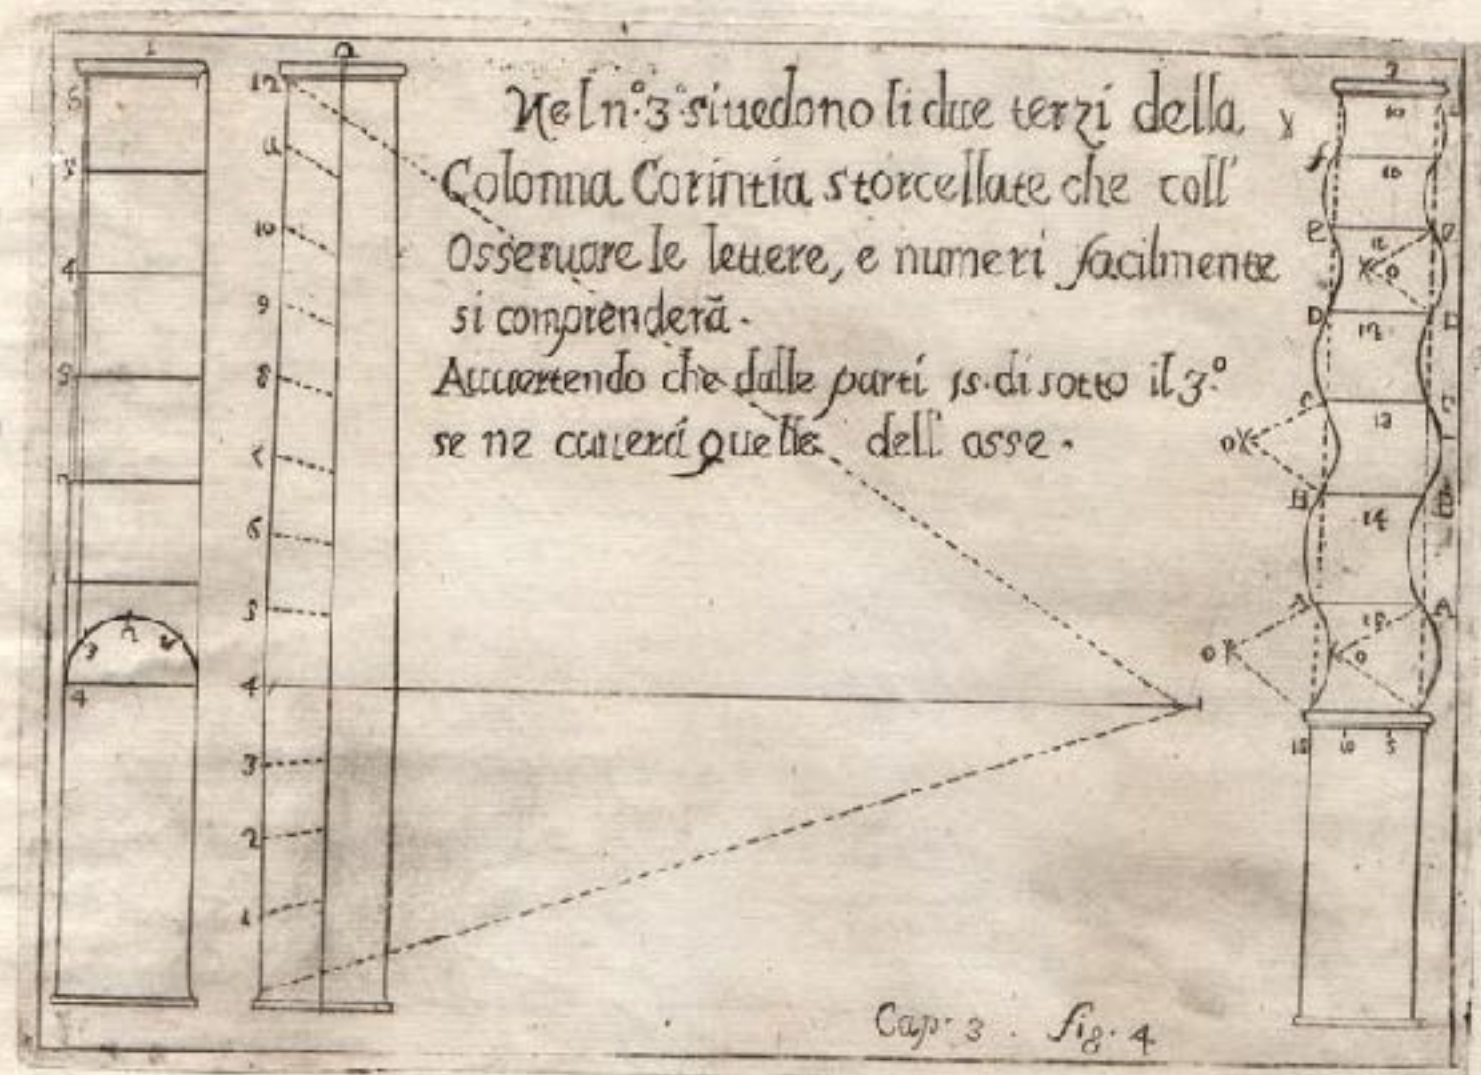 Nel n.º 3º si uedono li due terzi della
Colonna Corintia storcellate che coll'
Osseruare le lettere, e numeri facilmente
si comprenderà.
Auuertendo che dalle parti 15. di sotto il 3.º
se ne cauerà quelle dell' asse.
Cap. 3. fig. 4
1
6
5
4
3
2
3
2
4
2
12
11
10
9
8
7
6
5
4
3
2
1
3
10
f
10
E
12
O
D
12
D
C
O
13
C
B
14
B
A
15
A
O
O
15
10
5